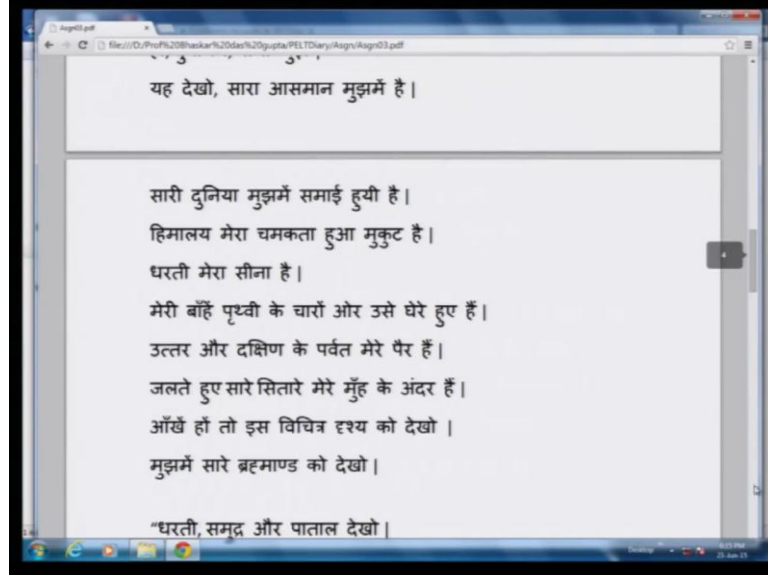 Asgn03.pdf
file:///D:/Prof%20Bhaskar%20das%20gupta/PELTDiary/Asgn/Asgn03.pdf
यह देखो, सारा आसमान मुझमें है |
सारी दुनिया मुझमें समाई हुयी है |
हिमालय मेरा चमकता हुआ मुकुट है |
धरती मेरा सीना है |
मेरी बाँहें पृथ्वी के चारों ओर उसे घेरे हुए हैं |
4
उत्तर और दक्षिण के पर्वत मेरे पैर हैं |
जलते हुए सारे सितारे मेरे मुँह के अंदर हैं |
आँखें हों तो इस विचित्र दृश्य को देखो |
मुझमें सारे ब्रह्माण्ड को देखो |
“धरती, समुद्र और पाताल देखो |
Desktop